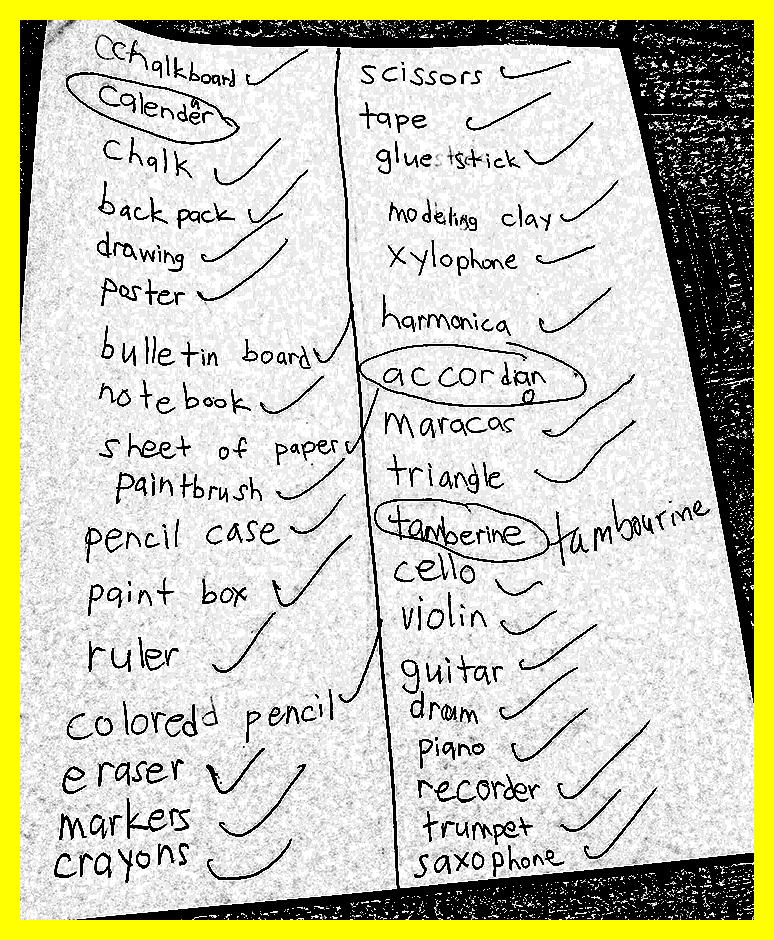 cchalkboard
calender
a
chalk
back pack
drawing
poster
bulletin board
notebook
sheet of paper
paintbrush
pencil case
paint box
ruler
coloredd pencil
eraser
markers
crayons
scissors
tape
glue stick
modeling clay
xylophone
harmonica
accordian
o
maracas
triangle
tamberine tambourine
cello
violin
guitar
drum
piano
recorder
trumpet
saxophone